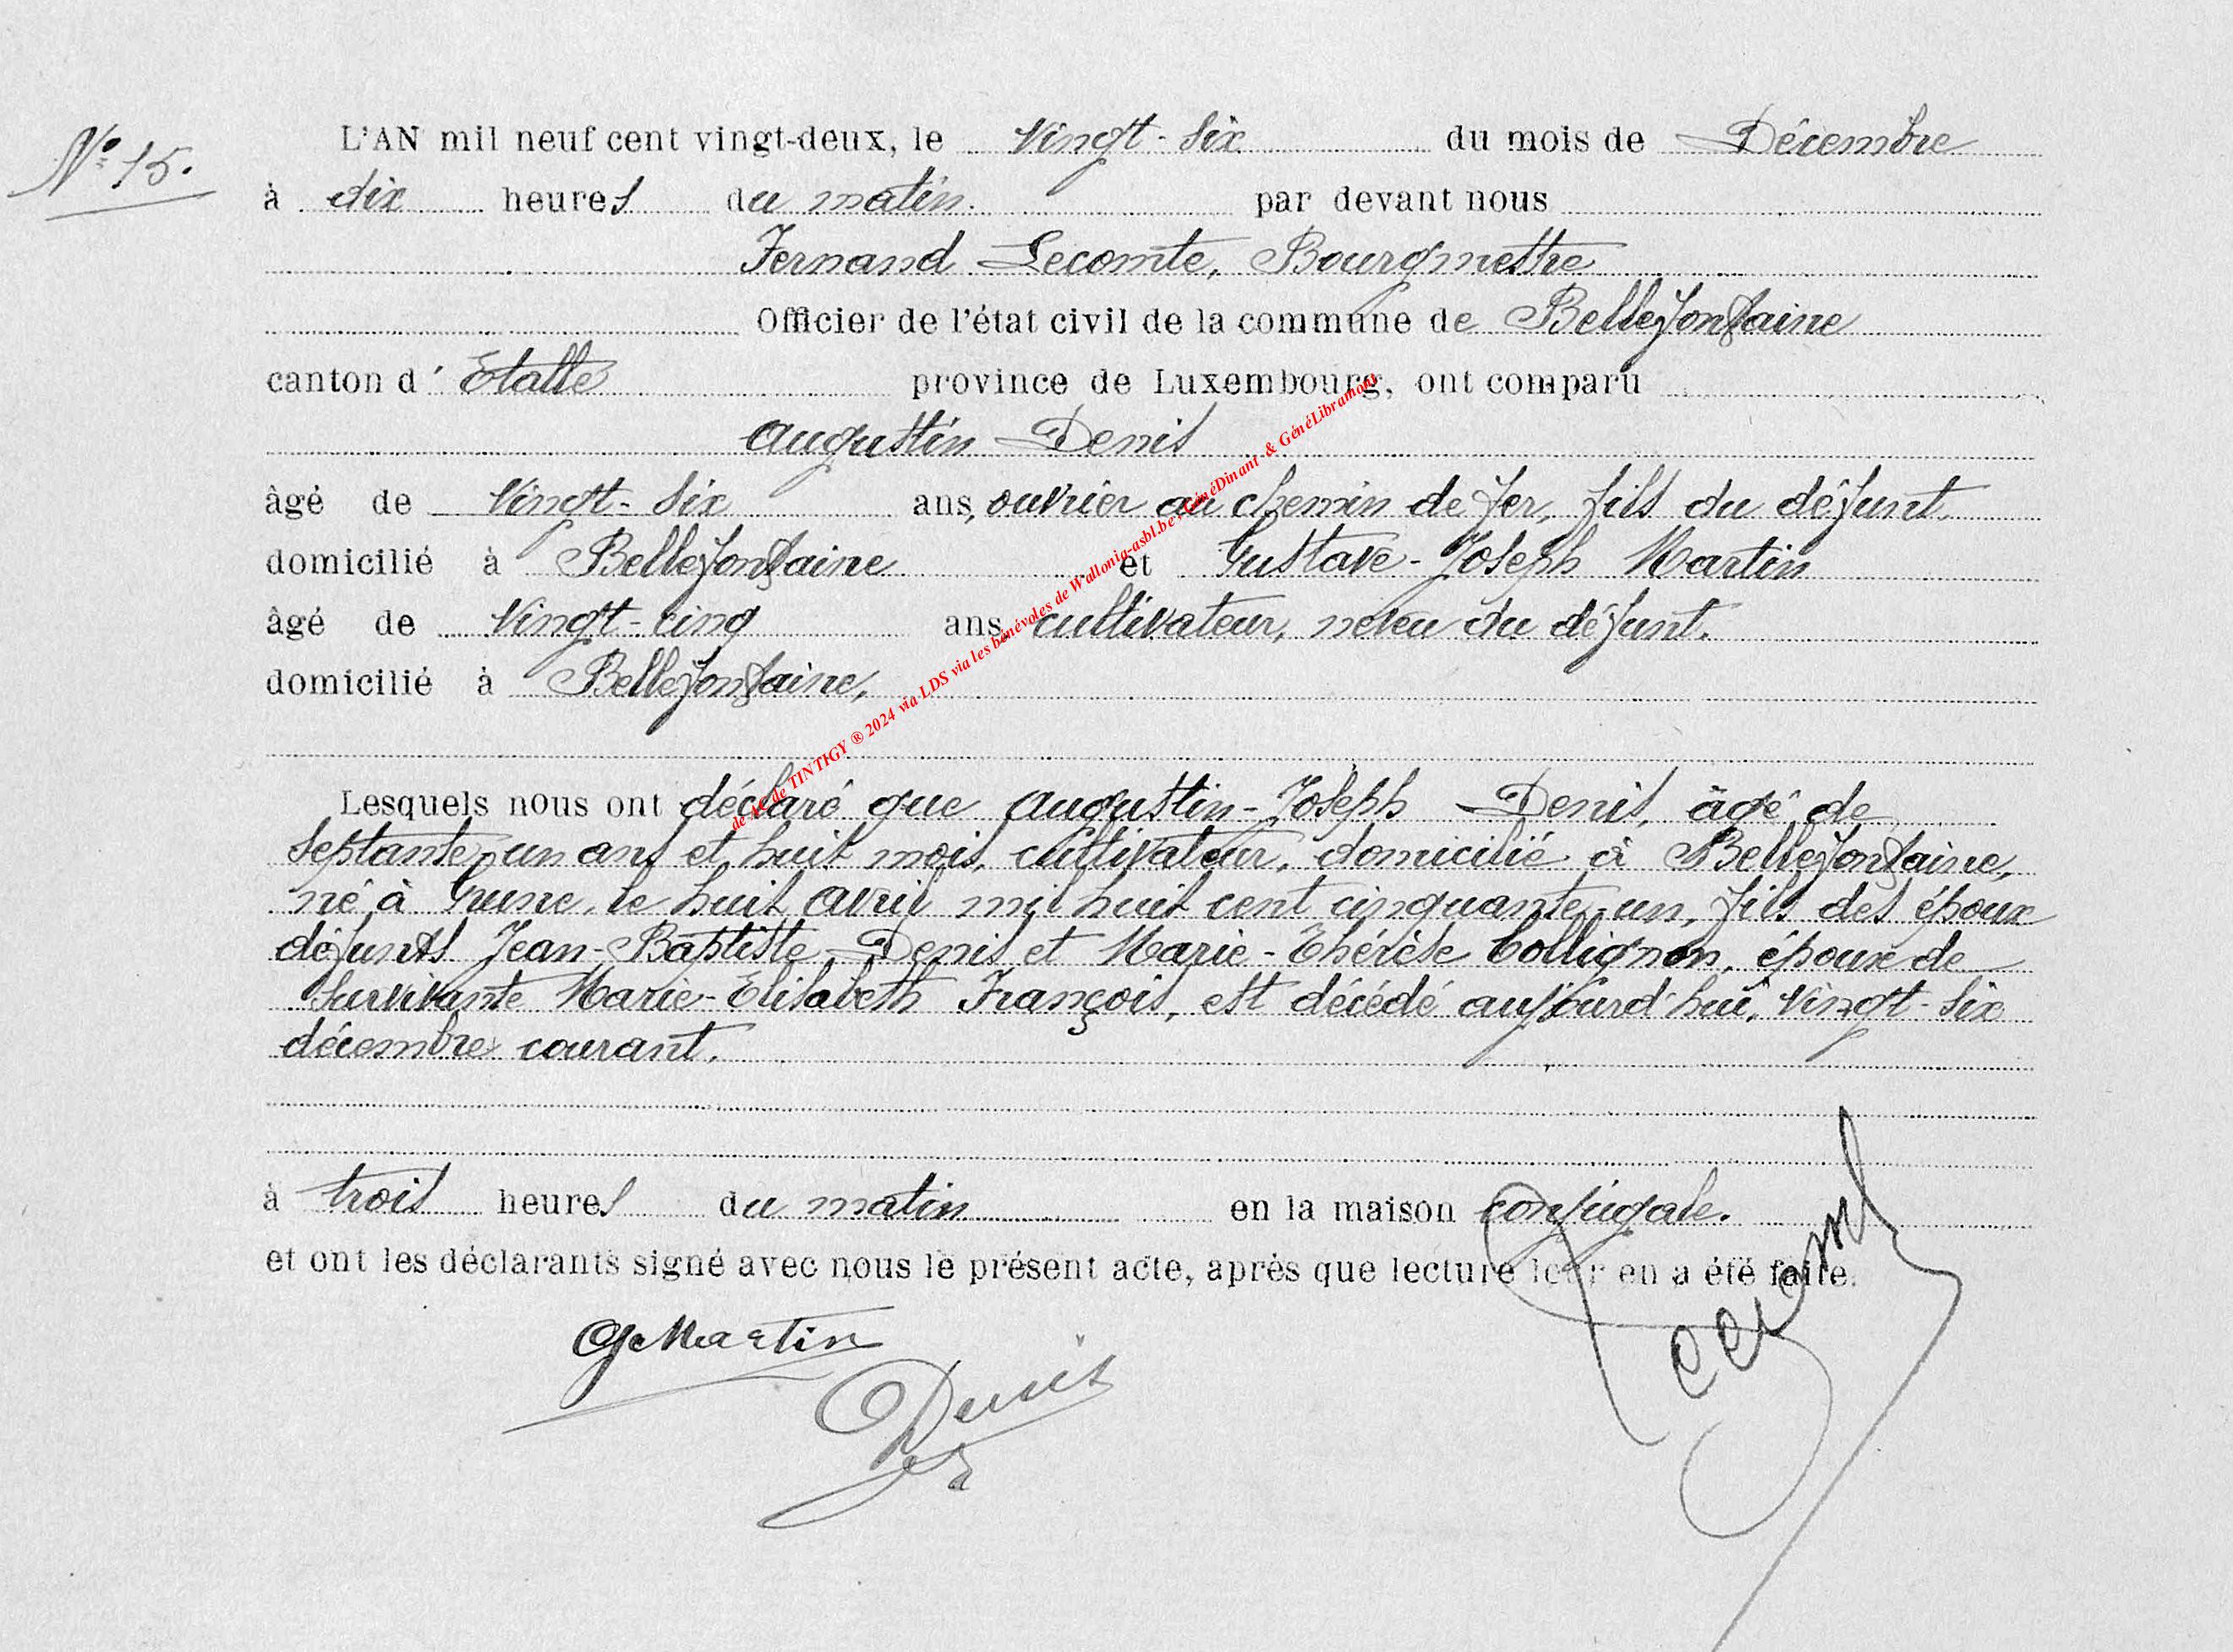 N° 15.
L'AN mil neuf cent vingt-deux, le Vingt-six du mois de Décembre
à dix heures du matin. par devant nous
Fernand Lecomte, Bourgmestre
Officier de l'état civil de la commune de Bellefontaine
canton d' Etalle province de Luxembourg, ont comparu
Augustin Denis
âgé de Vingt-six ans, ouvrier au chemin de fer, fils du défunt.
domicilié à Bellefontaine et Gustave-Joseph Martin
âgé de Vingt-cinq ans, cultivateur, neveu du défunt.
domicilié à Bellefontaine,
de AC de TINTIGY ® 2024 via LDS via les bénévoles de Wallonia-asbl.be, GénéDinant & GénéLibramont
Lesquels nous ont déclaré que Augustin-Joseph Denis, âgé de
septante-un ans et huit mois, cultivateur, domicilié à Bellefontaine,
né à Grune, le huit avril mil huit cent cinquante-un, fils des époux
défunts Jean-Baptiste Denis et Marie-Thérèse Collignon, époux de
survivante Marie-Elisabeth François, est décédé aujourd'hui, vingt-six
décembre courant.
à trois heures du matin en la maison conjugale.
et ont les déclarants signé avec nous le présent acte, après que lecture leur en a été faite.
G. Martin
Denis